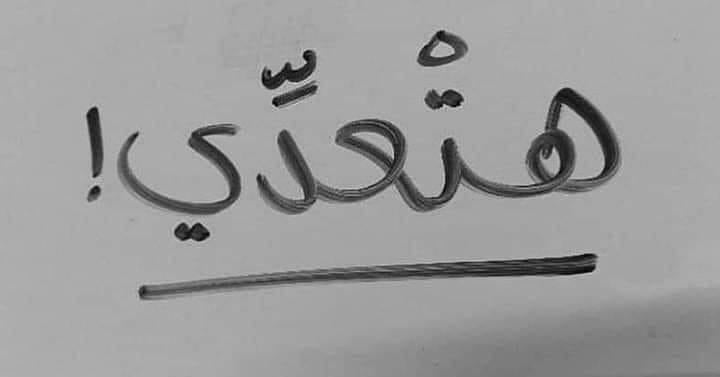 هتْعدّي!